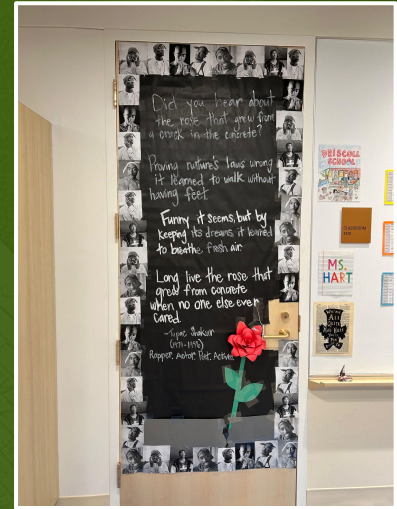 Did you hear about
the rose that grew from
a crack in the concrete?
Proving nature's laws wrong
it learned to walk without
having feet
Funny it seems, but by
keeping its dreams it learned
to breathe fresh air
Long live the rose that
grew from concrete
when no one else ever
cared.
-Tupac Shakur
(1971-1996)
Rapper, Actor, Poet, Activist
DRISCOLL
SCHOOL
CLASSROOM
MS.
HART